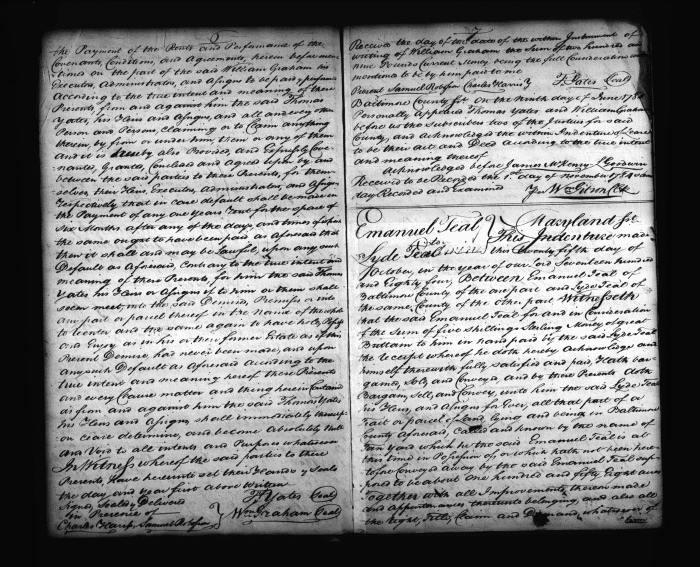 the Payment of the Rents and Performance of the
Covenants, Conditions, and Agreements, herein before men
tioned on the part of the said William Graham his
Executors, Administrators, and Assigns to be paid & performed
According to the true intent and meaning of these
Presents, from and against him the said Thomas
Yates, his Heirs and Assigns, and all and every other
Person and Persons, Claiming or to Claim anything
therein by, from or under him them or any of them
and it is hereby also Provided, and Expressly Cove
nanted, Granted, Concluded and Agreed upon by and
between the said parties to these Presents, for them
selves, their Heirs, Executors, Administrators, and Assigns
respectively that in case default shall be made in
the Payment of any one Years Rent for the space of
Six Months after any of the days, and times of which
the same ought to have been paid as Aforesaid that
then it shall and may be Lawful, upon any such
Default as Aforesaid, Contrary to the true intent and
meaning of these Presents, for him the said Thomas
Yates his Heirs or Assigns if to him or them shall
seem meet, into the said Demised Premises or into
any part or parcel thereof in the name of the whole
to reenter and the same again to have hold Possess
and Enjoy as in his or their former Estate as if this
Present Demise had never been made, and upon
any such Default as Aforesaid According to the
true intent and meaning hereof these Presents
and every Clause matter and thing herein Contained
as from and against him the said Thomas Yates
his Heirs and Assigns, shall immediately thereup
on cease determine, and become Absolutely Null
and Void to all intents and Purposes whatsoever
In Witness whereof the said parties to these
Presents, have hereunto set their Hands & Seals
the day and year first above Written
Signed, Sealed & Delivered
in Presence of
Ts Yates Seal
Charles Harriss Samuel
Wm Graham Seal
Received the day of the date of the within Instrument of
writing of William Graham the Sum of two hundred and
nine Pounds Current Money being the full Consideration
mentioned to be by him paid to me
Present Samuel Charles Harriss
Ts Yates Seal
Baltimore County sct On the Ninth day of June 1784
Personally Appeared Thomas Yates and William Graham
before us the Subscribers two of the Justices for said
County, and Acknowledged the within Indenture of Lease
to be their act and Deed According to the true intent
and meaning thereof
Acknowledged before James McHenry L Goodwin
Received to be Recorded the 1st day of November 1784 same
day Recorded and Examined
Wm Gibson Clk
Emanuel Teal
to
Lyde Teal
Maryland sct
This Indenture made
this County fifth day of
October, in the year of our Lord Seventeen hundred
and Eighty four Between Emanuel Teal of
Baltimore County of the one part and Lyde Teal of
the same County of the other part Witnesseth
that the said Emanuel Teal for and in Consideration
of the Sum of five shillings Sterling Money of great
Brittain to him in hand paid by the said Lyde Teal
the receipt whereof he doth hereby Acknowledge and
himself therewith fully satisfied and paid, Hath bar
gained, Sold, and Conveyed, and by these Presents doth
Bargain, Sell, and Convey, unto him the said Lyde Teal
his Heirs, and Assigns for Ever, all that part of a
tract or parcel of Land lying and being in Baltimore
County Aforesaid, Called and known by the name of
Tan Yard which he the said Emanuel Teal is at
this time in Possession of, or which hath not been here
tofore Conveyed away by the said Emanuel Teal sup
posed to be about One hundred and fifty Eight acres
Together with all Improvements, thereon made
and appurtenances thereunto belonging, and also all
the Right, Title, Claim and Demand, whatsoever of